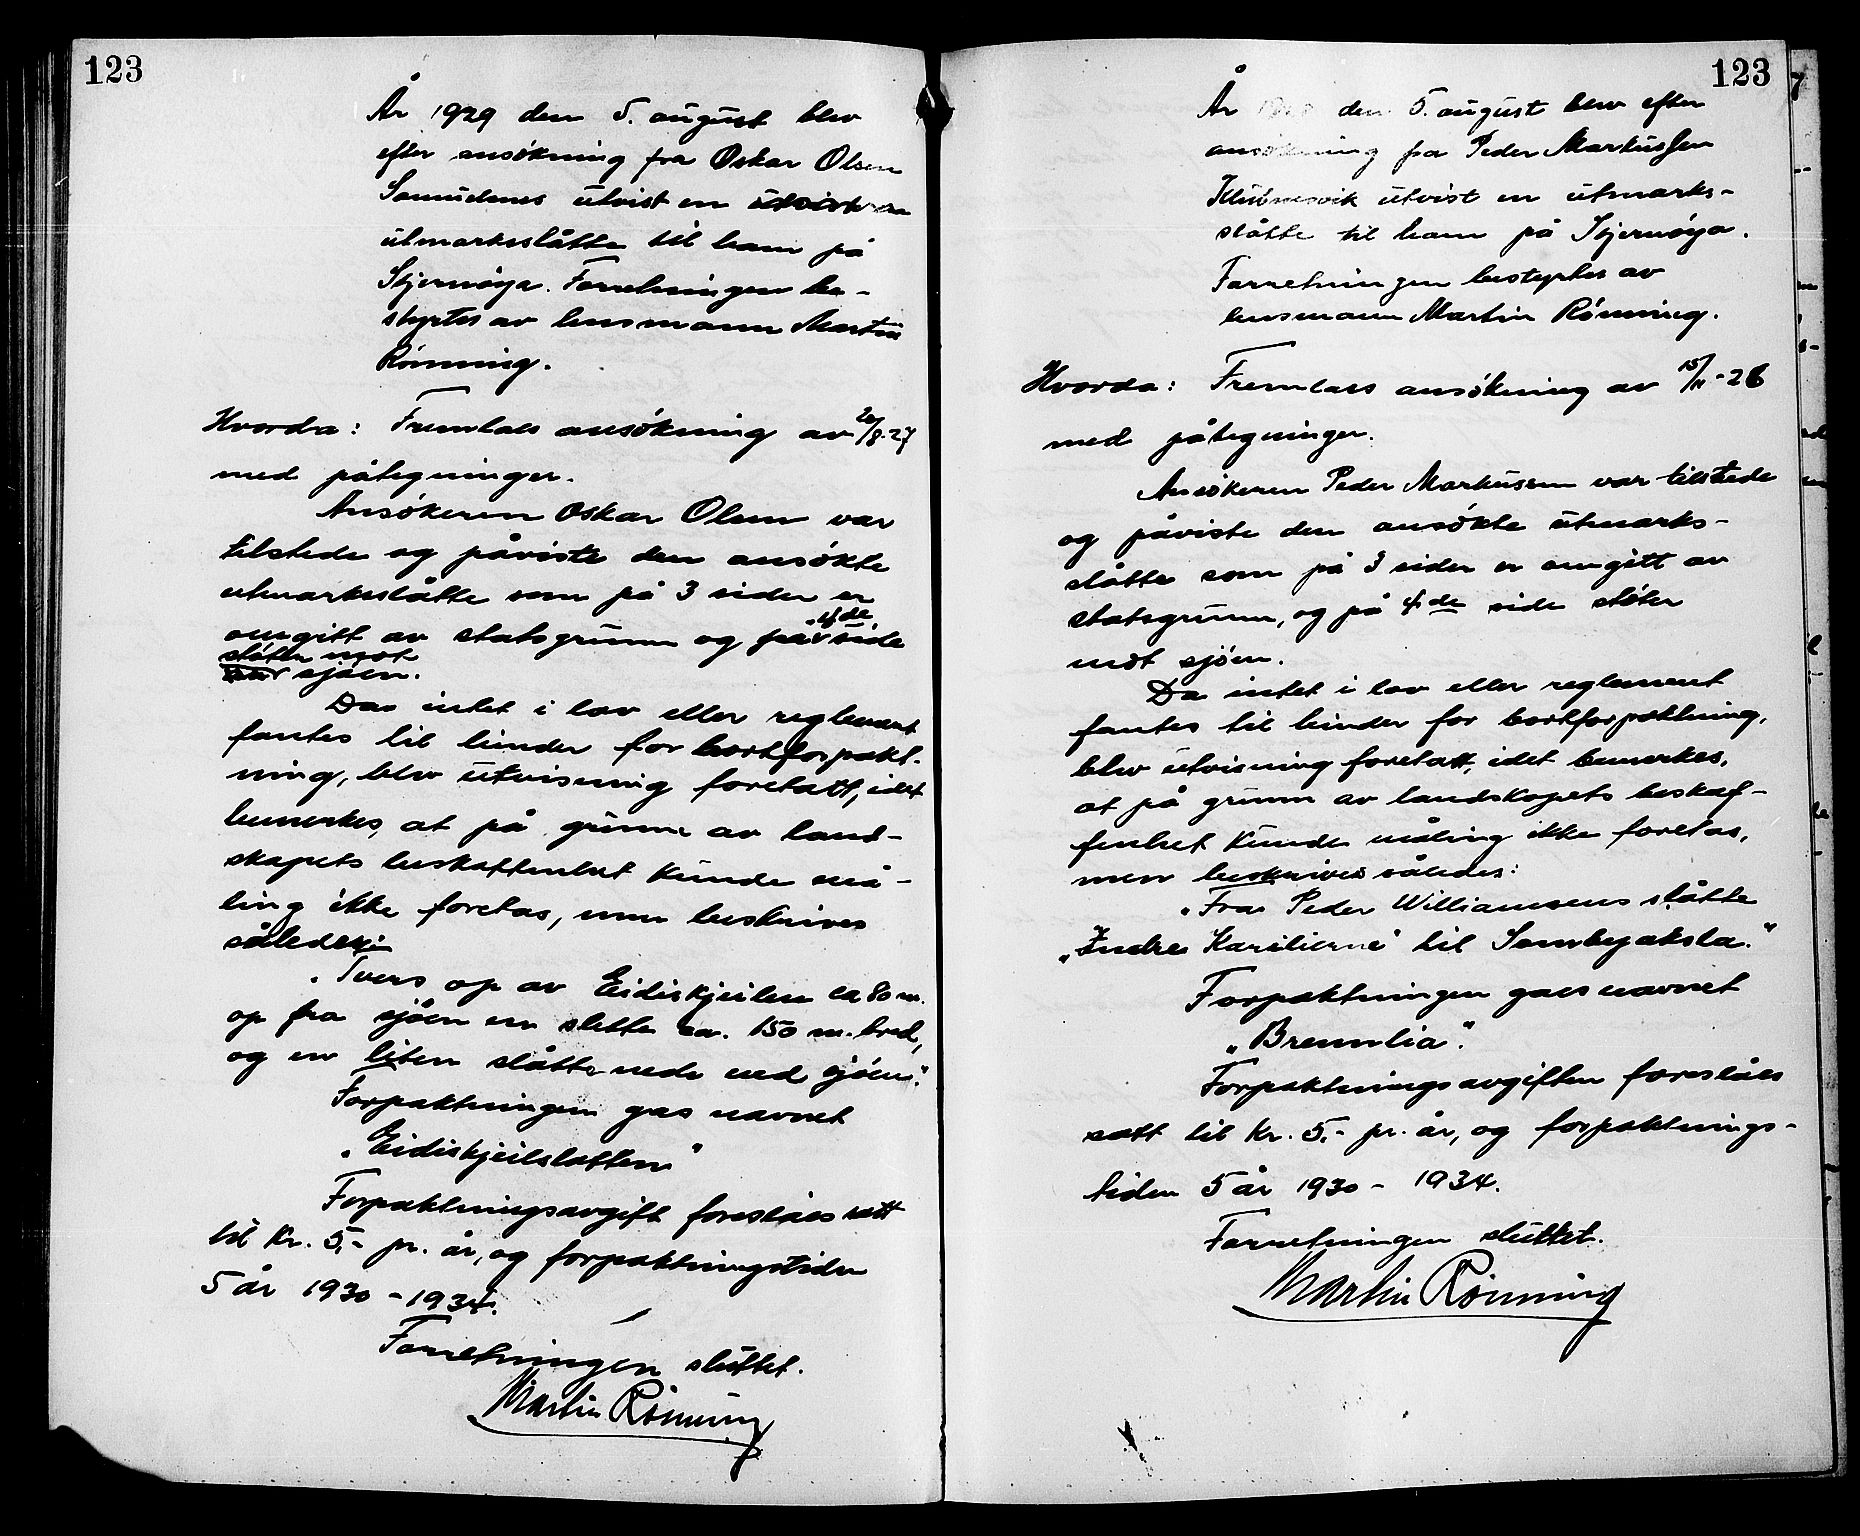 123
År 1929 den 5. august blev
efter ansökning fra Oskar Olsen
utvist en
utmarksslåtte til ham på
Stjernöya. Forretningen be-
styrtes av lensmann Martin
Rönning.
Hvorda: Fremlaes ansökning av 20/8-27
med påtegninger.
Ansökeren Oskar Olsen var
tilstede og påviste den ansökte
utmarksslåtte som på 3 sider er
omgitt av statsgrunn og på 4de side
stöter mot
sjöen.
Da intet i lov eller reglement
fantes til hinder for bortforpakt-
ning, blev utvisning foretatt, idet
bemerkes, at på grunn av land-
skapets beskaffenhet kunde må-
ling ikke foretas, men beskrives
således:
"Tvers op av Eidiskjeilen ca 80 m.
op fra sjöen en slette ca. 150 m. bred,
og en liten slåtte nede ved sjöen."
Forpaktningen gas navnet
"Eidiskjeilslåtten"
Forpaktningsavgift foreslåes satt
til Kr. 5,- pr. år, og forpaktningstiden
5 år 1930 - 1934.
Forretningen sluttet.
Martin Rönning
123
År den 5. august blev efter
ansökning fra Peder Markussen
Klubnesvik utvist en utmarks-
slåtte til ham på Stjernöya.
Forretningen bestyrtes av
lensmann Martin Rönning.
Hvorda: Fremlaes ansökning av 15/11-26
med påtegninger.
Ansökeren Peder Markussen var tilstede
og påviste den ansökte utmarks-
slåtte som på 3 sider er omgitt av
statsgrunn, og på 4de side stöter
mot sjöen.
Da intet i lov eller reglement
fantes til hinder for bortforpaktning,
blev utvisning foretatt, idet bemerkes,
at på grunn av landskapets beskaf-
fenhet kunde måling ikke foretas,
men beskrives således:
"Fra Peder Williamsens slåtte
"Indre til
Forpaktningen gaes navnet
"Brennlia".
Forpaktningsavgiften foreslåes
satt til Kr. 5,- pr. år, og forpaktnings-
tiden 5 år 1930 - 1934.
Forretningen sluttet.
Martin Rönning